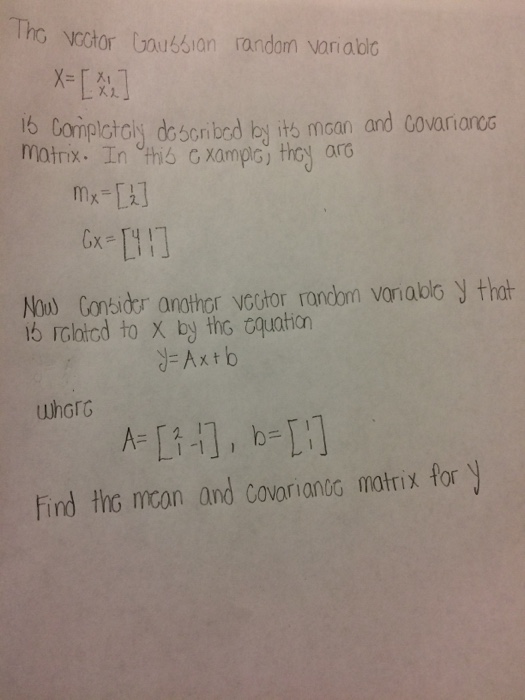 The vector Gaussian random variable
X = [x1
x2]
is completely described by its mean and covariance
matrix. In this example, they are
mx = [1
2]
Cx = [4 1
1 1]
Now consider another vector random variable y that
is related to x by the equation
y = Ax + b
where
A = [2 1
1 -1], b = [1
1]
Find the mean and covariance matrix for y